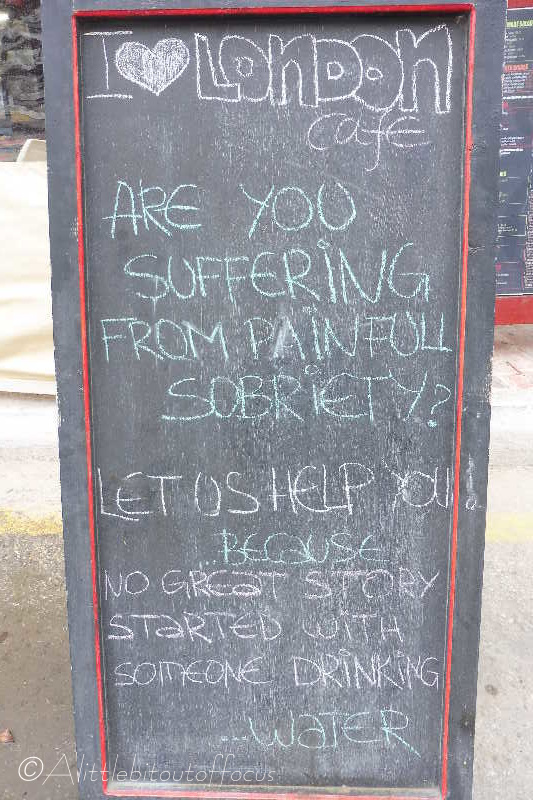 I ♥ LONDON
cafe
ARE YOU
SUFFERING
FROM PAINFULL
SOBRIETY?
LET US HELP YOU
..BECAUSE
NO GREAT STORY
STARTED WITH
SOMEONE DRINKING
...WATER
©Alittlebitoutoffocus